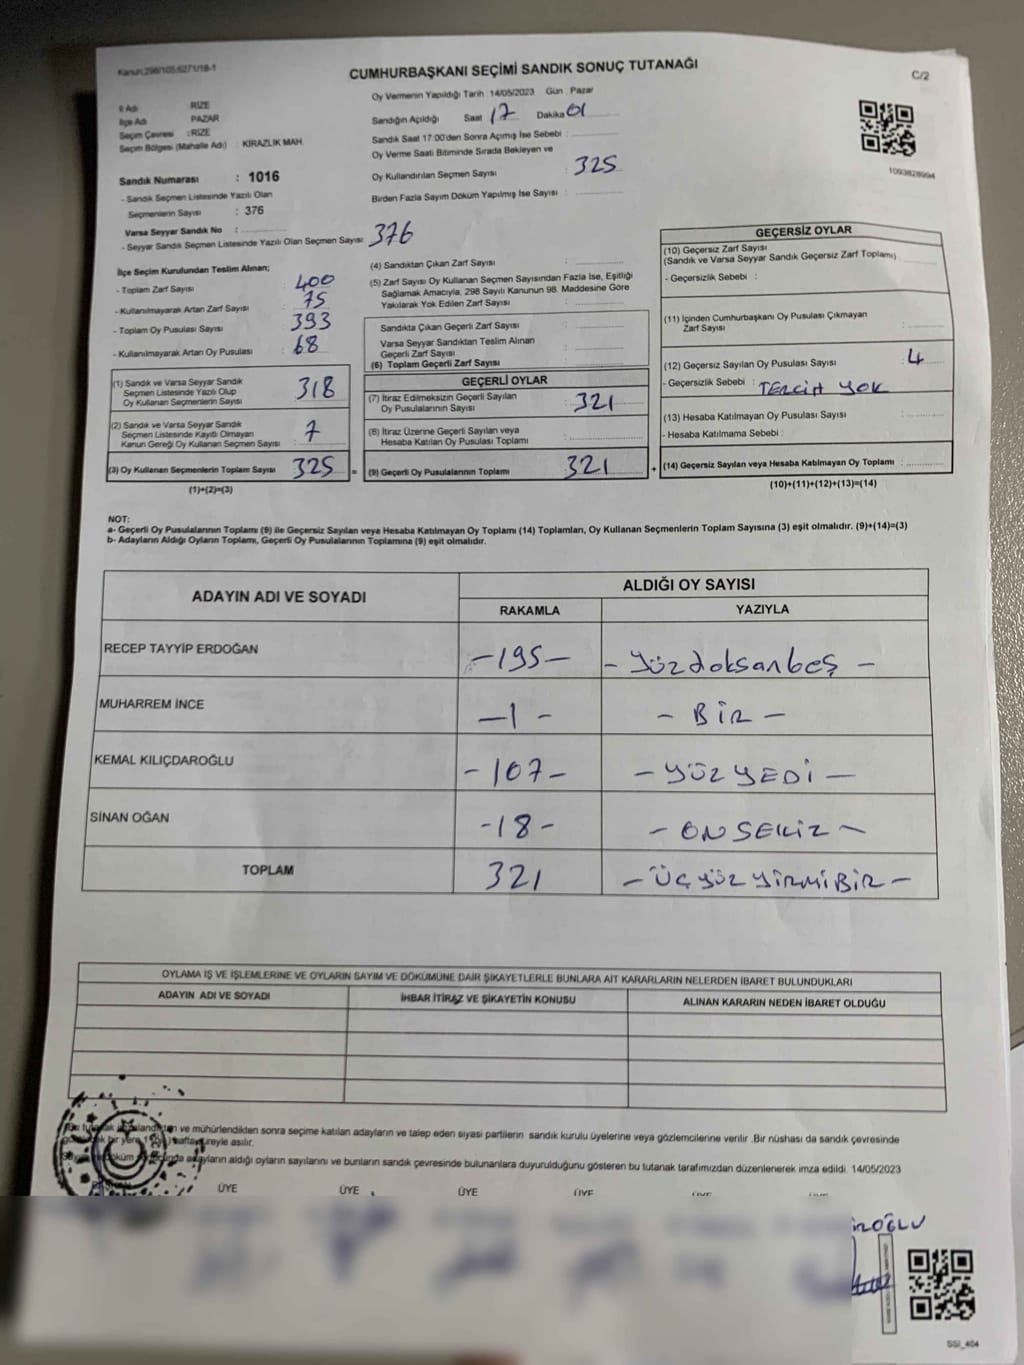 Kanun:298/105;6271/18-1
CUMHURBAŞKANI SEÇİMİ SANDIK SONUÇ TUTANAĞI
C/2
İl Adı RİZE
İlçe Adı PAZAR
Seçim Çevresi :RİZE
Seçim Bölgesi (Mahalle Adı) : KİRAZLIK MAH.
Sandık Numarası : 1016
- Sandık Seçmen Listesinde Yazılı Olan
Seçmenlerin Sayısı : 376
Varsa Seyyar Sandık No :
- Seyyar Sandık Seçmen Listesinde Yazılı Olan Seçmen Sayısı: 376
Oy Vermenin Yapıldığı Tarih :14/05/2023 Gün : Pazar
Sandığın Açıldığı Saat 17 Dakika 01
Sandık Saat 17:00'den Sonra Açımış İse Sebebi :
Oy Verme Saati Bitiminde Sırada Bekleyen ve
Oy Kullandırılan Seçmen Sayısı : 325
Birden Fazla Sayım Döküm Yapılmış İse Sayısı :
1093828994
İlçe Seçim Kurulundan Teslim Alınan;
- Toplam Zarf Sayısı : 400
- Kullanılmayarak Artan Zarf Sayısı : 75
- Toplam Oy Pusulası Sayısı : 393
- Kullanılmayarak Artan Oy Pusulası : 68
(1) Sandık ve Varsa Seyyar Sandık
Seçmen Listesinde Yazılı Olup
Oy Kullanan Seçmenlerin Sayısı : 318
(2) Sandık ve Varsa Seyyar Sandık
Seçmen Listesinde Kayıtlı Olmayan
Kanun Gereği Oy Kullanan Seçmen Sayısı : 7
(3) Oy Kullanan Seçmenlerin Toplam Sayısı 325 =
(1)+(2)=(3)
(4) Sandıktan Çıkan Zarf Sayısı :
(5) Zarf Sayısı Oy Kullanan Seçmen Sayısından Fazla İse, Eşitliği
Sağlamak Amacıyla, 298 Sayılı Kanunun 98. Maddesine Göre
Yakılarak Yok Edilen Zarf Sayısı :
Sandıkta Çıkan Geçerli Zarf Sayısı :
Varsa Seyyar Sandıktan Teslim Alınan
Geçerli Zarf Sayısı :
(6) Toplam Geçerli Zarf Sayısı :
GEÇERLİ OYLAR
(7) İtiraz Edilmeksizin Geçerli Sayılan
Oy Pusulalarının Sayısı : 321
(8) İtiraz Üzerine Geçerli Sayılan veya
Hesaba Katılan Oy Pusulası Toplamı :
(9) Geçerli Oy Pusulalarının Toplamı 321 +
GEÇERSİZ OYLAR
(10) Geçersiz Zarf Sayısı
(Sandık ve Varsa Seyyar Sandık Geçersiz Zarf Toplamı)
- Geçersizlik Sebebi :
(11) İçinden Cumhurbaşkanı Oy Pusulası Çıkmayan
Zarf Sayısı :
(12) Geçersiz Sayılan Oy Pusulası Sayısı : 4
- Geçersizlik Sebebi : TERCİH YOK
(13) Hesaba Katılmayan Oy Pusulası Sayısı :
- Hesaba Katılmama Sebebi :
(14) Geçersiz Sayılan veya Hesaba Katılmayan Oy Toplamı :
(10)+(11)+(12)+(13)=(14)
NOT:
a- Geçerli Oy Pusulalarının Toplamı (9) ile Geçersiz Sayılan veya Hesaba Katılmayan Oy Toplamı (14) Toplamları, Oy Kullanan Seçmenlerin Toplam Sayısına (3) eşit olmalıdır. (9)+(14)=(3)
b- Adayların Aldığı Oyların Toplamı, Geçerli Oy Pusulalarının Toplamına (9) eşit olmalıdır.
ADAYIN ADI VE SOYADI
ALDIĞI OY SAYISI
RAKAMLA YAZIYLA
RECEP TAYYİP ERDOĞAN -195- - Yüzdoksanbeş -
MUHARREM İNCE -1- - BİR -
KEMAL KILIÇDAROĞLU -107- - YÜZ YEDİ -
SİNAN OĞAN -18- - ON SEKİZ -
TOPLAM 321 - ÜÇ YÜZ YİRMİ BİR -
OYLAMA İŞ VE İŞLEMLERİNE VE OYLARIN SAYIM VE DÖKÜMÜNE DAİR ŞİKAYETLERLE BUNLARA AİT KARARLARIN NELERDEN İBARET BULUNDUKLARI
ADAYIN ADI VE SOYADI İHBAR İTİRAZ VE ŞİKAYETİN KONUSU ALINAN KARARIN NEDEN İBARET OLDUĞU
ve mühürlendikten sonra seçime katılan adayların ve talep eden siyasi partilerin sandık kurulu üyelerine veya gözlemcilerine verilir. Bir nüshası da sandık çevresinde
bir yere süreyle asılır.
adayların aldığı oyların sayılarını ve bunların sandık çevresinde bulunanlara duyurulduğunu gösteren bu tutanak tarafımızdan düzenlenerek imza edildi. 14/05/2023
ÜYE ÜYE ÜYE ÜYE
SSI_404